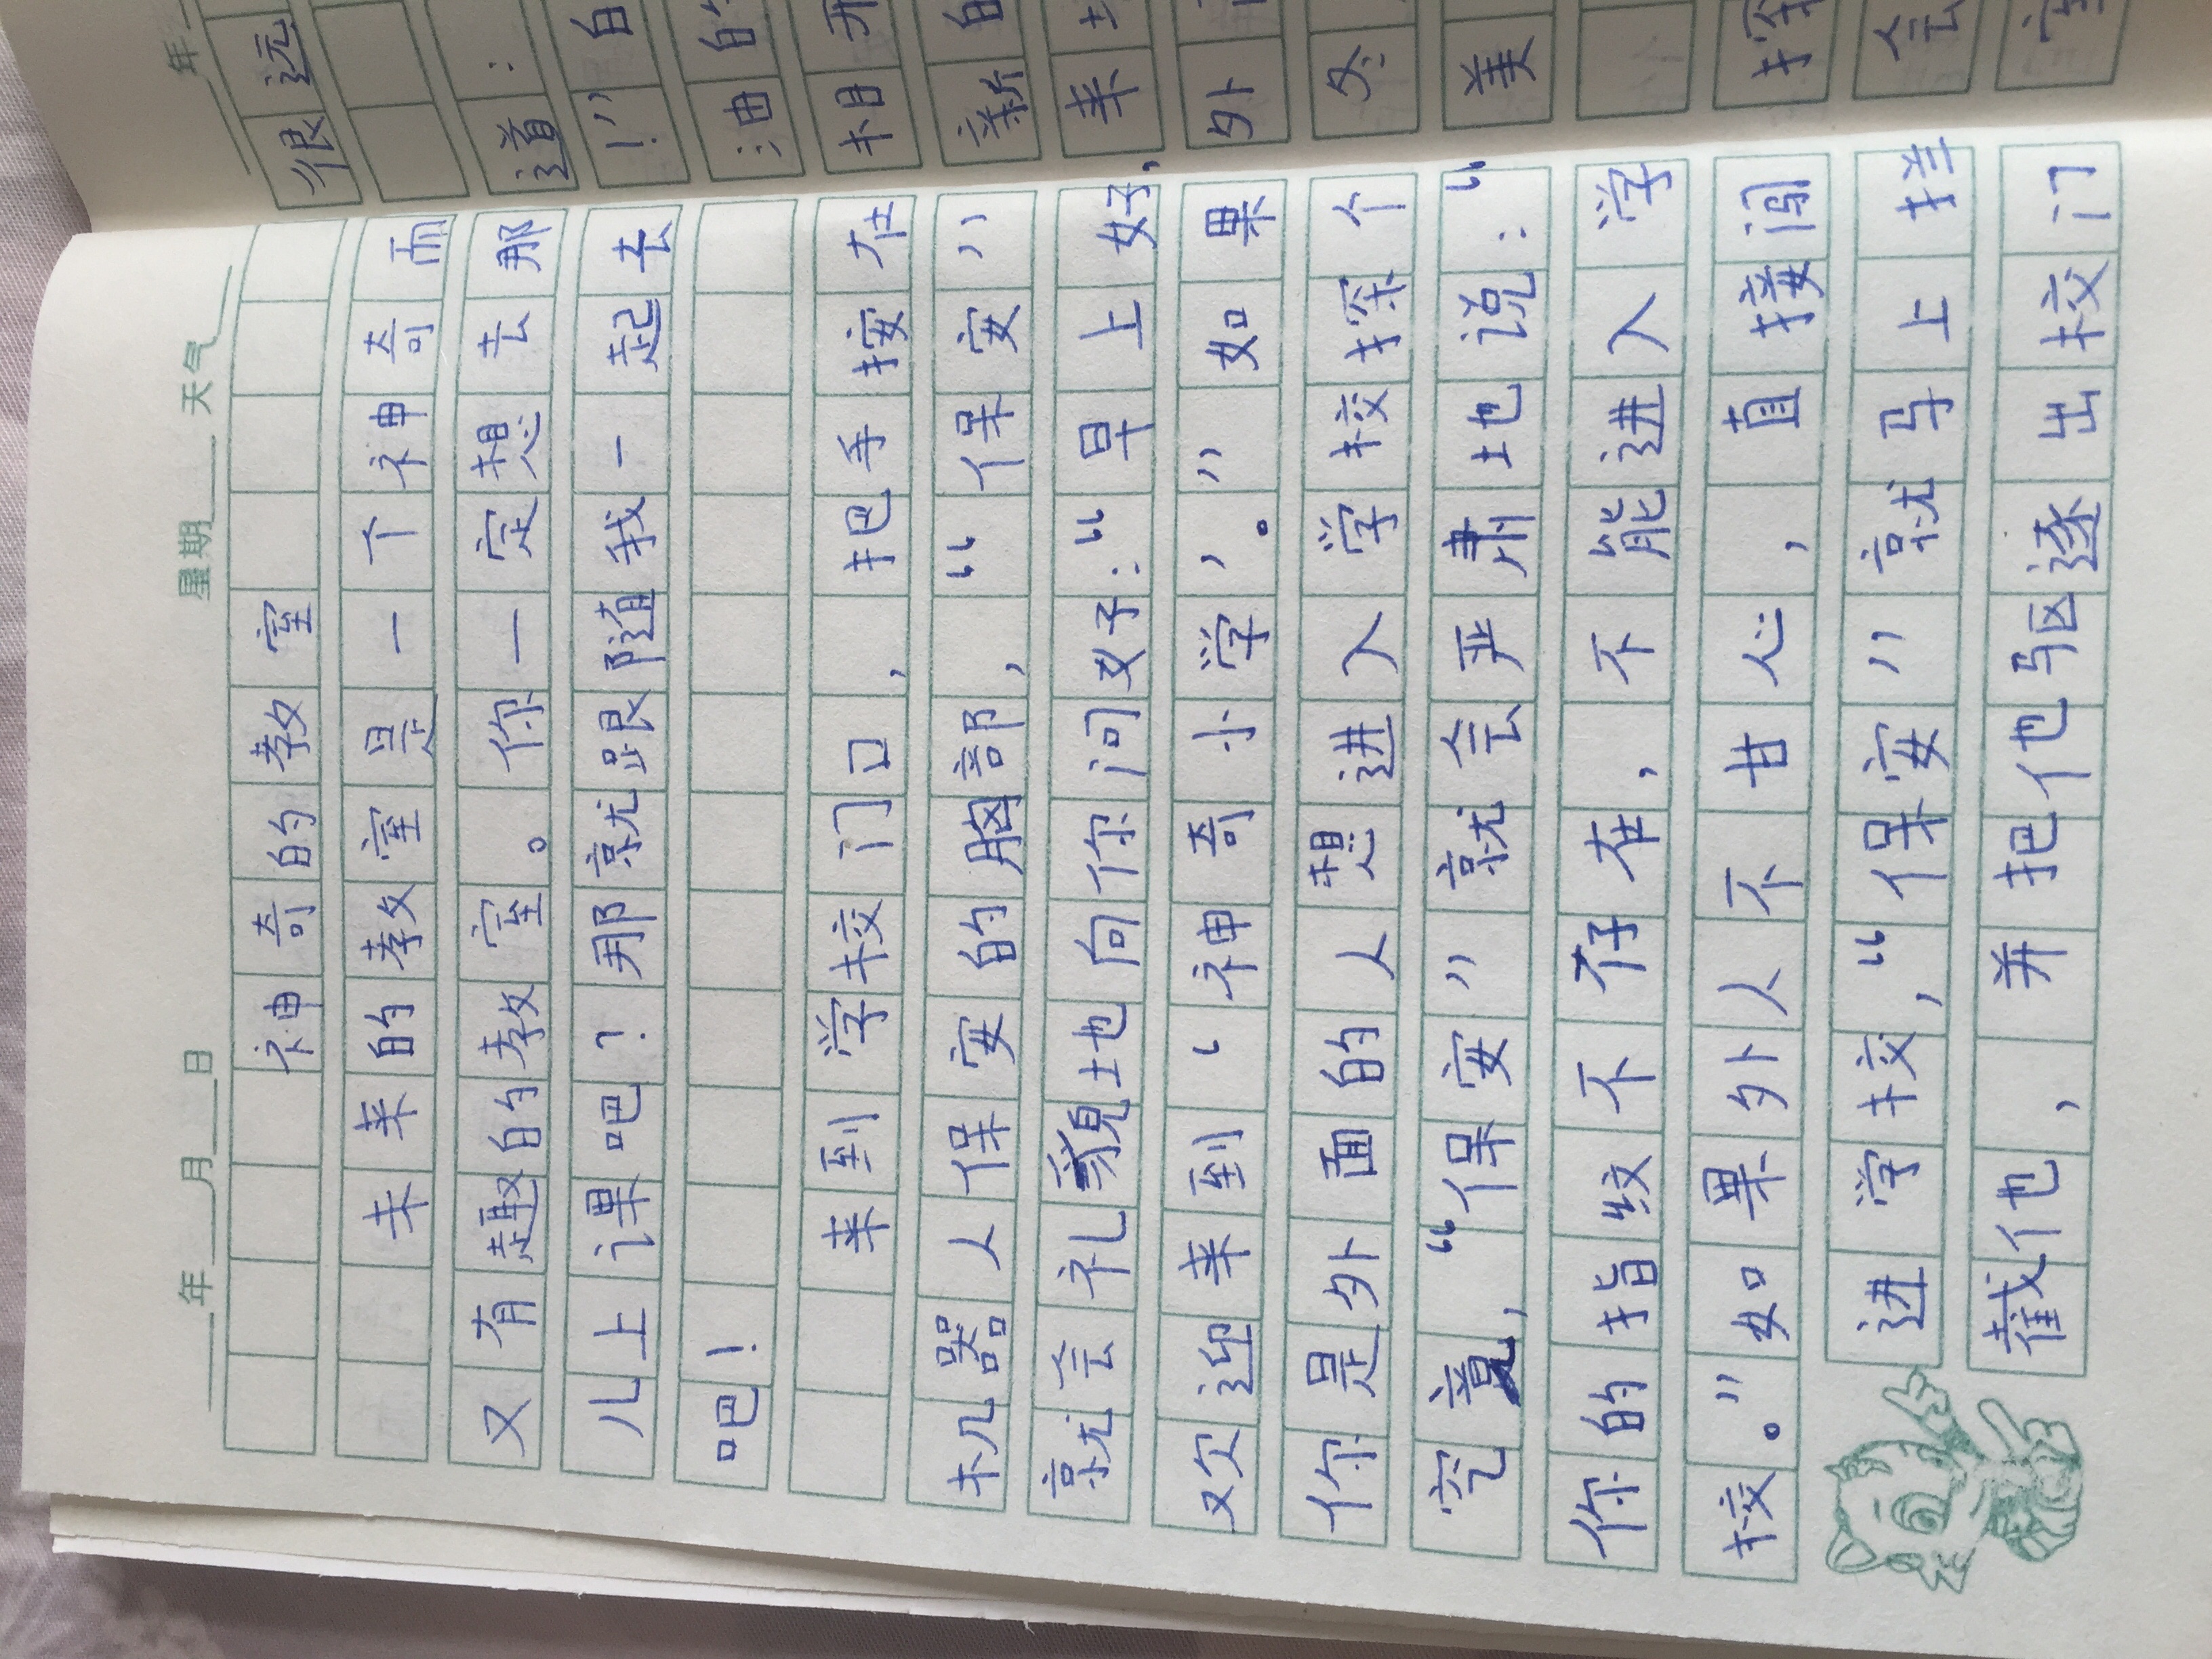 年 月 日 星期 天气
神奇的教室
未来的教室是一个神奇而
又有趣的教室。你一定想去那
儿上课吧？那就跟随我一起去
吧！
来到学校门口，把手按在
机器人保安的胸部，“保安”
就会礼貌地向你问好：“早上好，
欢迎来到‘神奇小学’。”如果
你是外面的人想进入学校探个
究竟，“保安”就会严肃地说：“
你的指纹不存在，不能进入学
校。”如果外人不甘心，直接闯
进学校，“保安”就马上拦
截他，并把他驱逐出校门
年
很远
道：
！”白
油白
相开
新自
来
外
冬
美
探
会
室